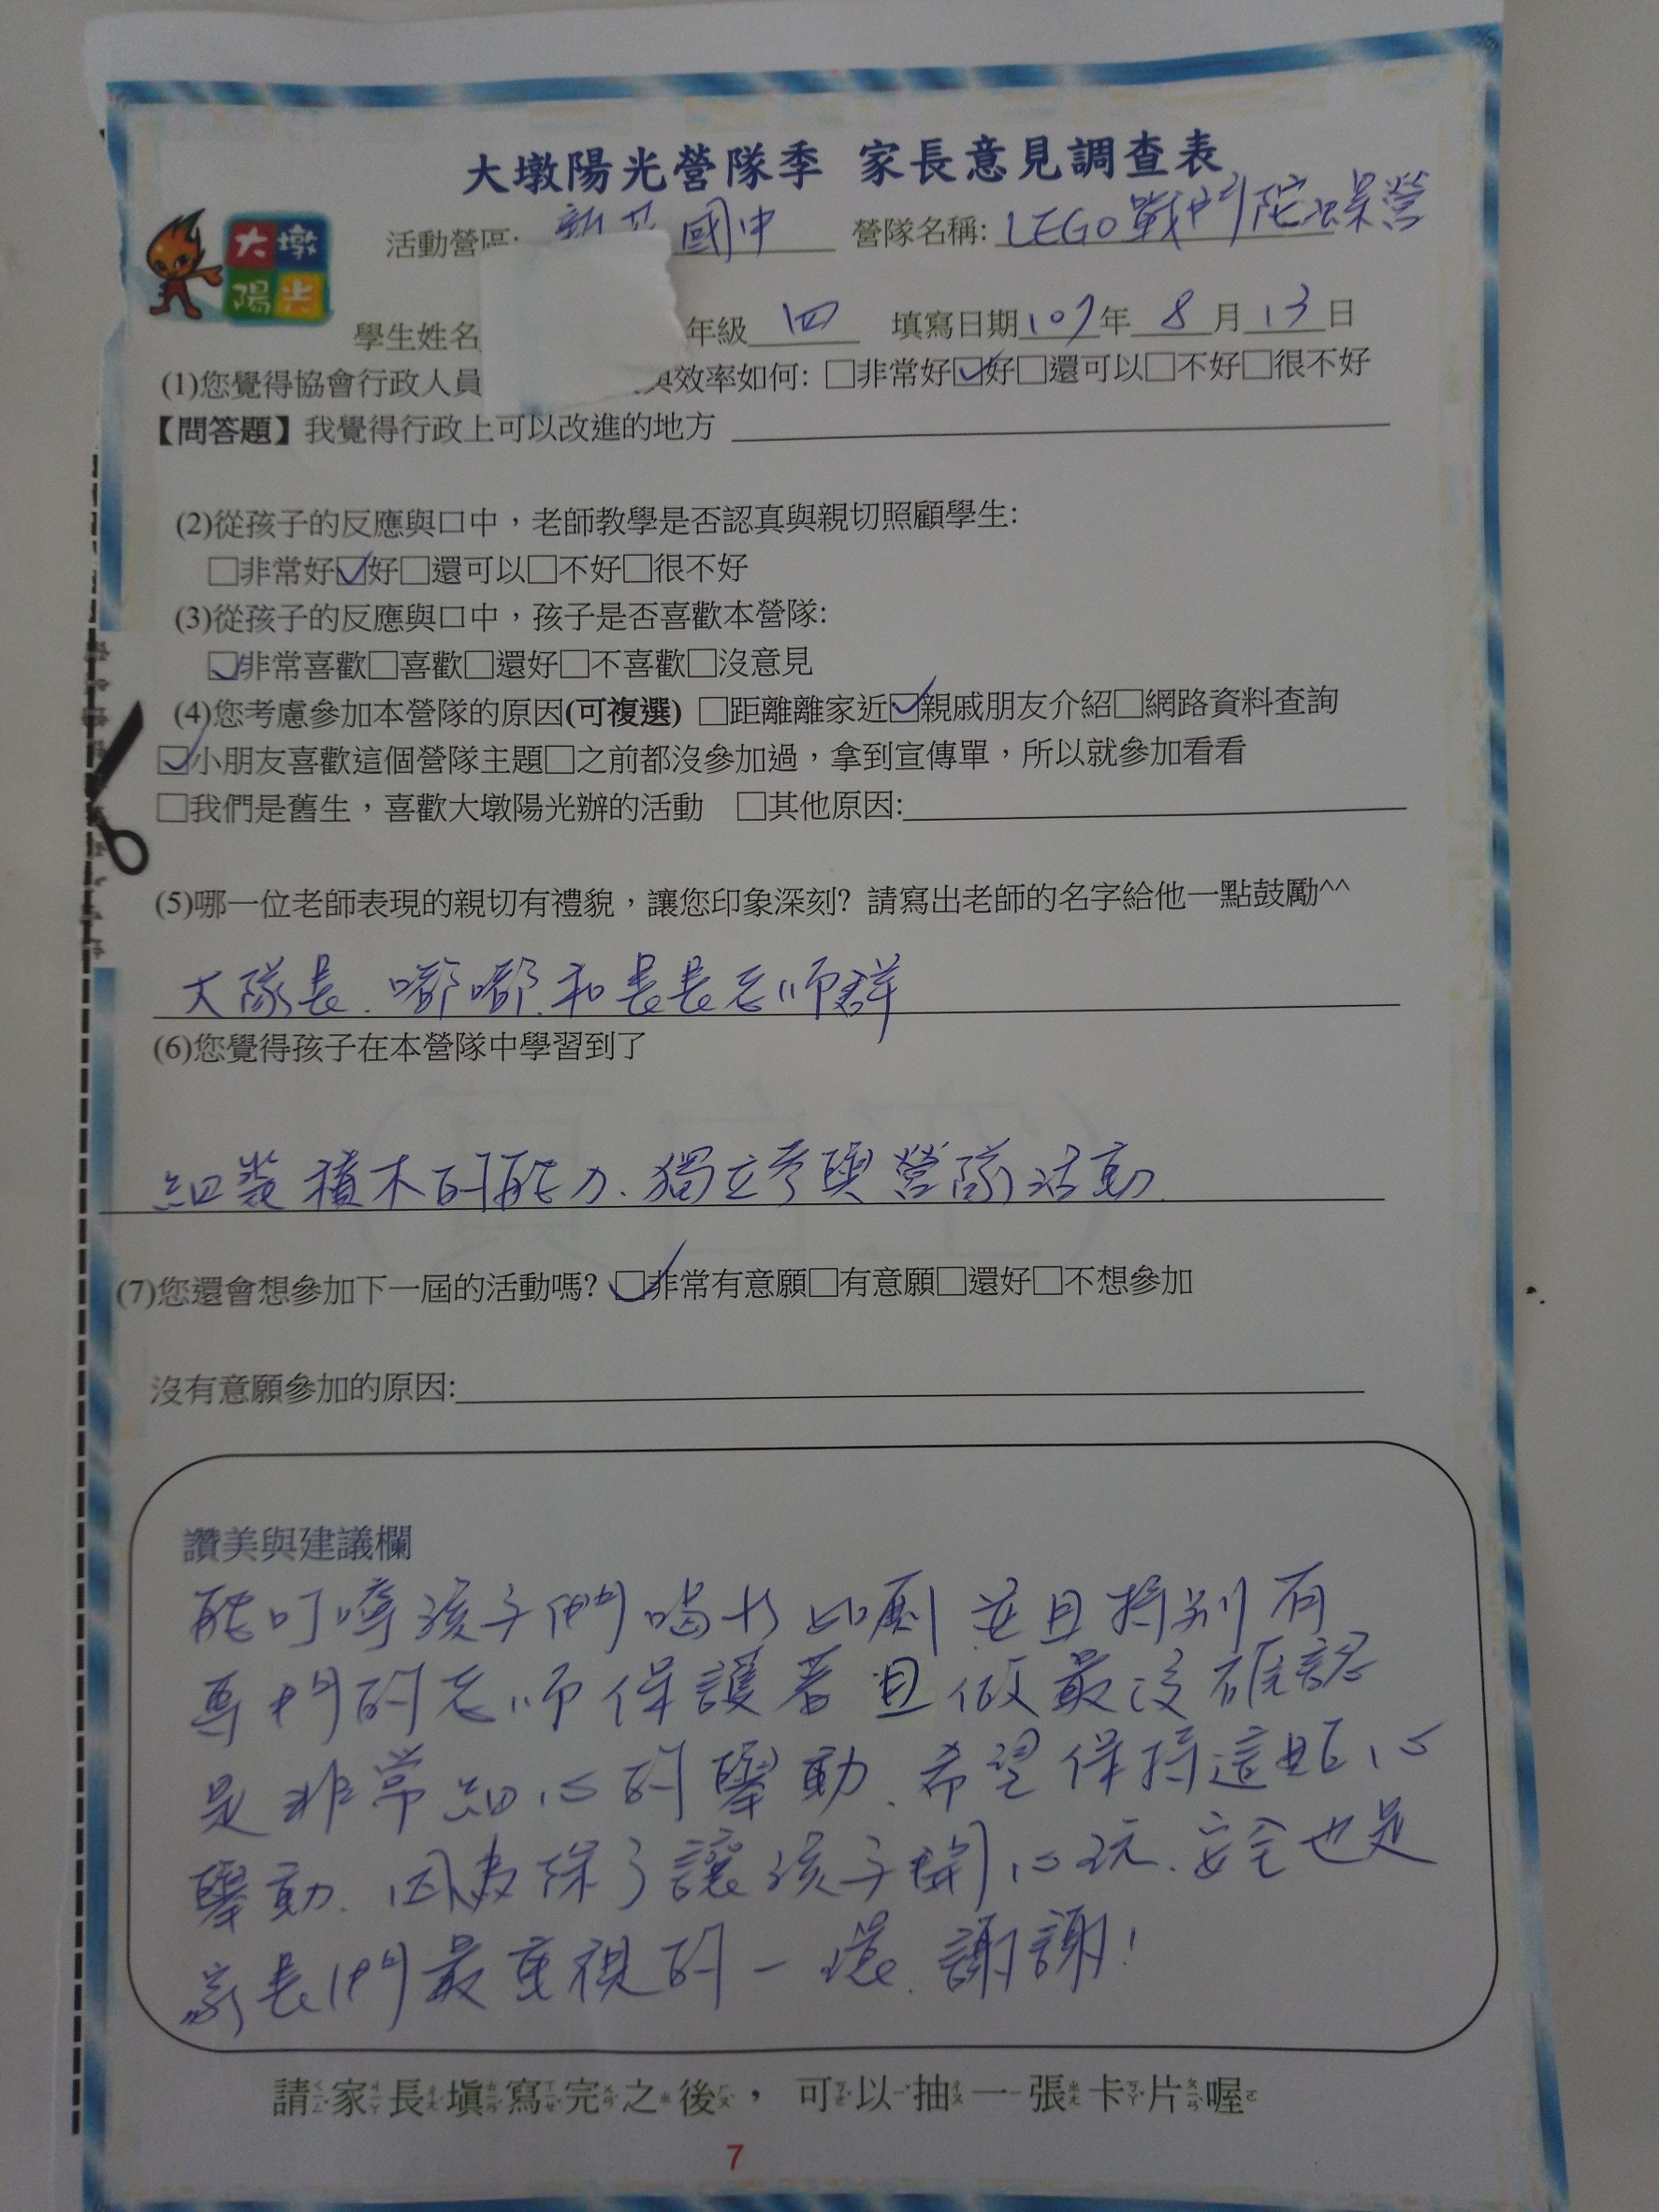 大墩陽光營隊季 家長意見調查表
大墩
陽光
活動營區: 國中 營隊名稱: LEGO戰鬥陀螺營
學生姓名 年級 四 填寫日期 107年 8月 13日
(1)您覺得協會行政人員 與效率如何: □非常好☑好□還可以□不好□很不好
【問答題】我覺得行政上可以改進的地方
(2)從孩子的反應與口中，老師教學是否認真與親切照顧學生:
□非常好☑好□還可以□不好□很不好
(3)從孩子的反應與口中，孩子是否喜歡本營隊:
☑非常喜歡□喜歡□還好□不喜歡□沒意見
(4)您考慮參加本營隊的原因(可複選) □距離離家近☑親戚朋友介紹□網路資料查詢
☑小朋友喜歡這個營隊主題□之前都沒參加過，拿到宣傳單，所以就參加看看
□我們是舊生，喜歡大墩陽光辦的活動 □其他原因:
(5)哪一位老師表現的親切有禮貌，讓您印象深刻? 請寫出老師的名字給他一點鼓勵^^
大隊長、嘟嘟、和長長老師群
(6)您覺得孩子在本營隊中學習到了
組裝積木的能力、獨立參與營隊活動
(7)您還會想參加下一屆的活動嗎? ☑非常有意願□有意願□還好□不想參加
沒有意願參加的原因:
讚美與建議欄
能叮嚀孩子們喝水 並且特別有
專門的老師保護著且做最後確認
是非常細心的舉動、希望保持這貼心
舉動、因為除了讓孩子開心玩、安全也是
家長們最重視的一環、謝謝!
請家長填寫完之後，可以抽一張卡片喔
7